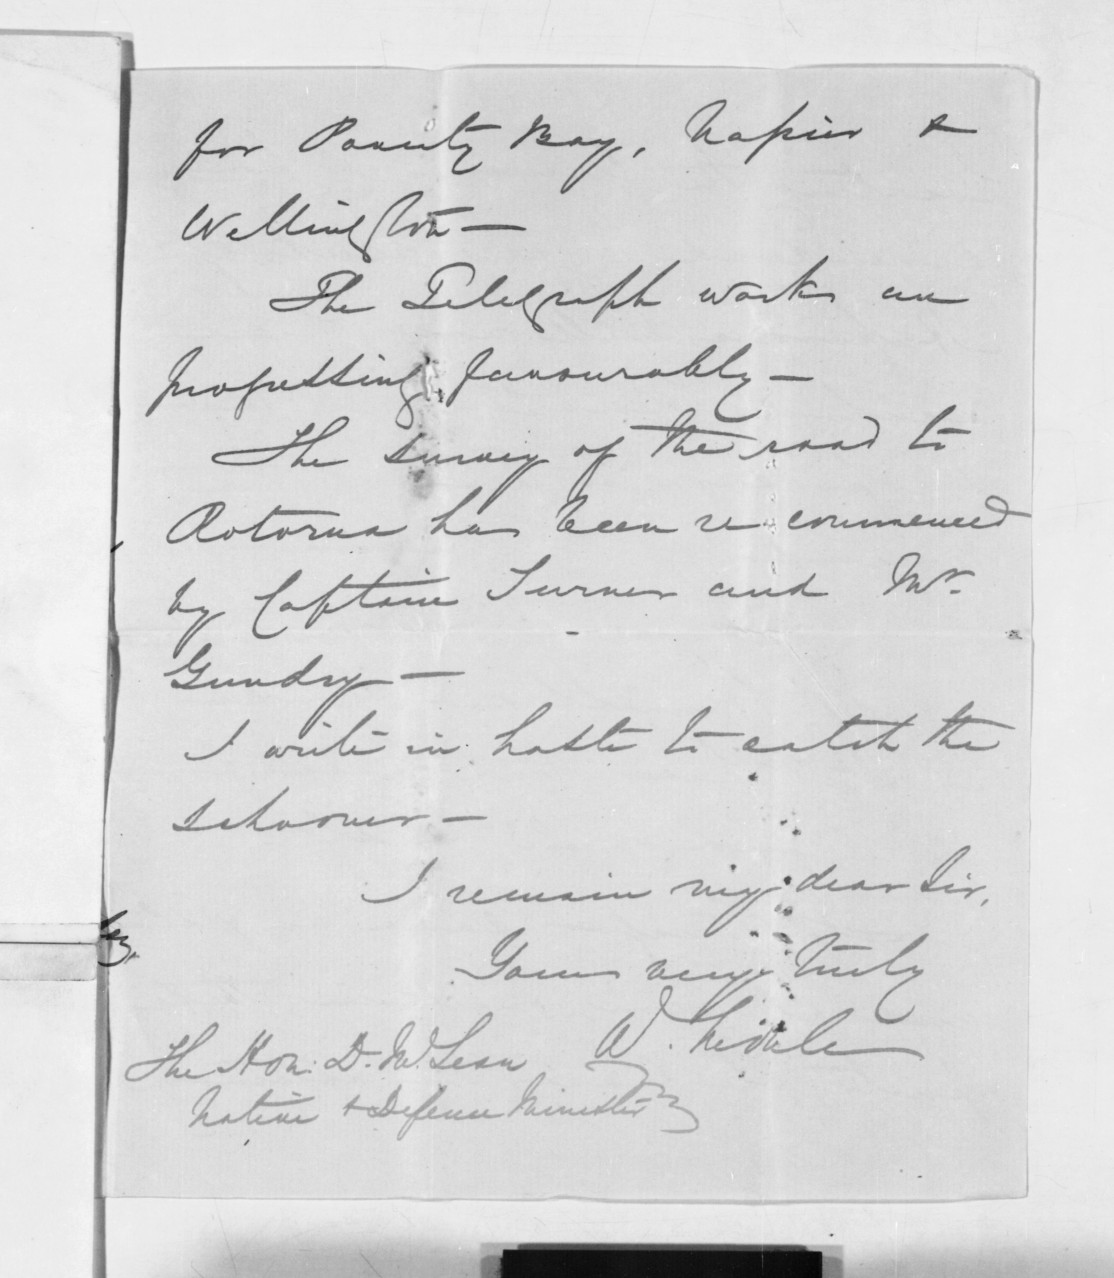 for Poverty Bay, Napier &
Wellington —
The Telegraph works are
progressing favourably —
The survey of the road to
Rotorua has been re commenced
by Captain Turner and Mr
Gundry —
I write in haste to catch the
schooner —
I remain my dear Sir,
Yours very truly
W.
The Hon. D. McLean
Native & Defence Minister